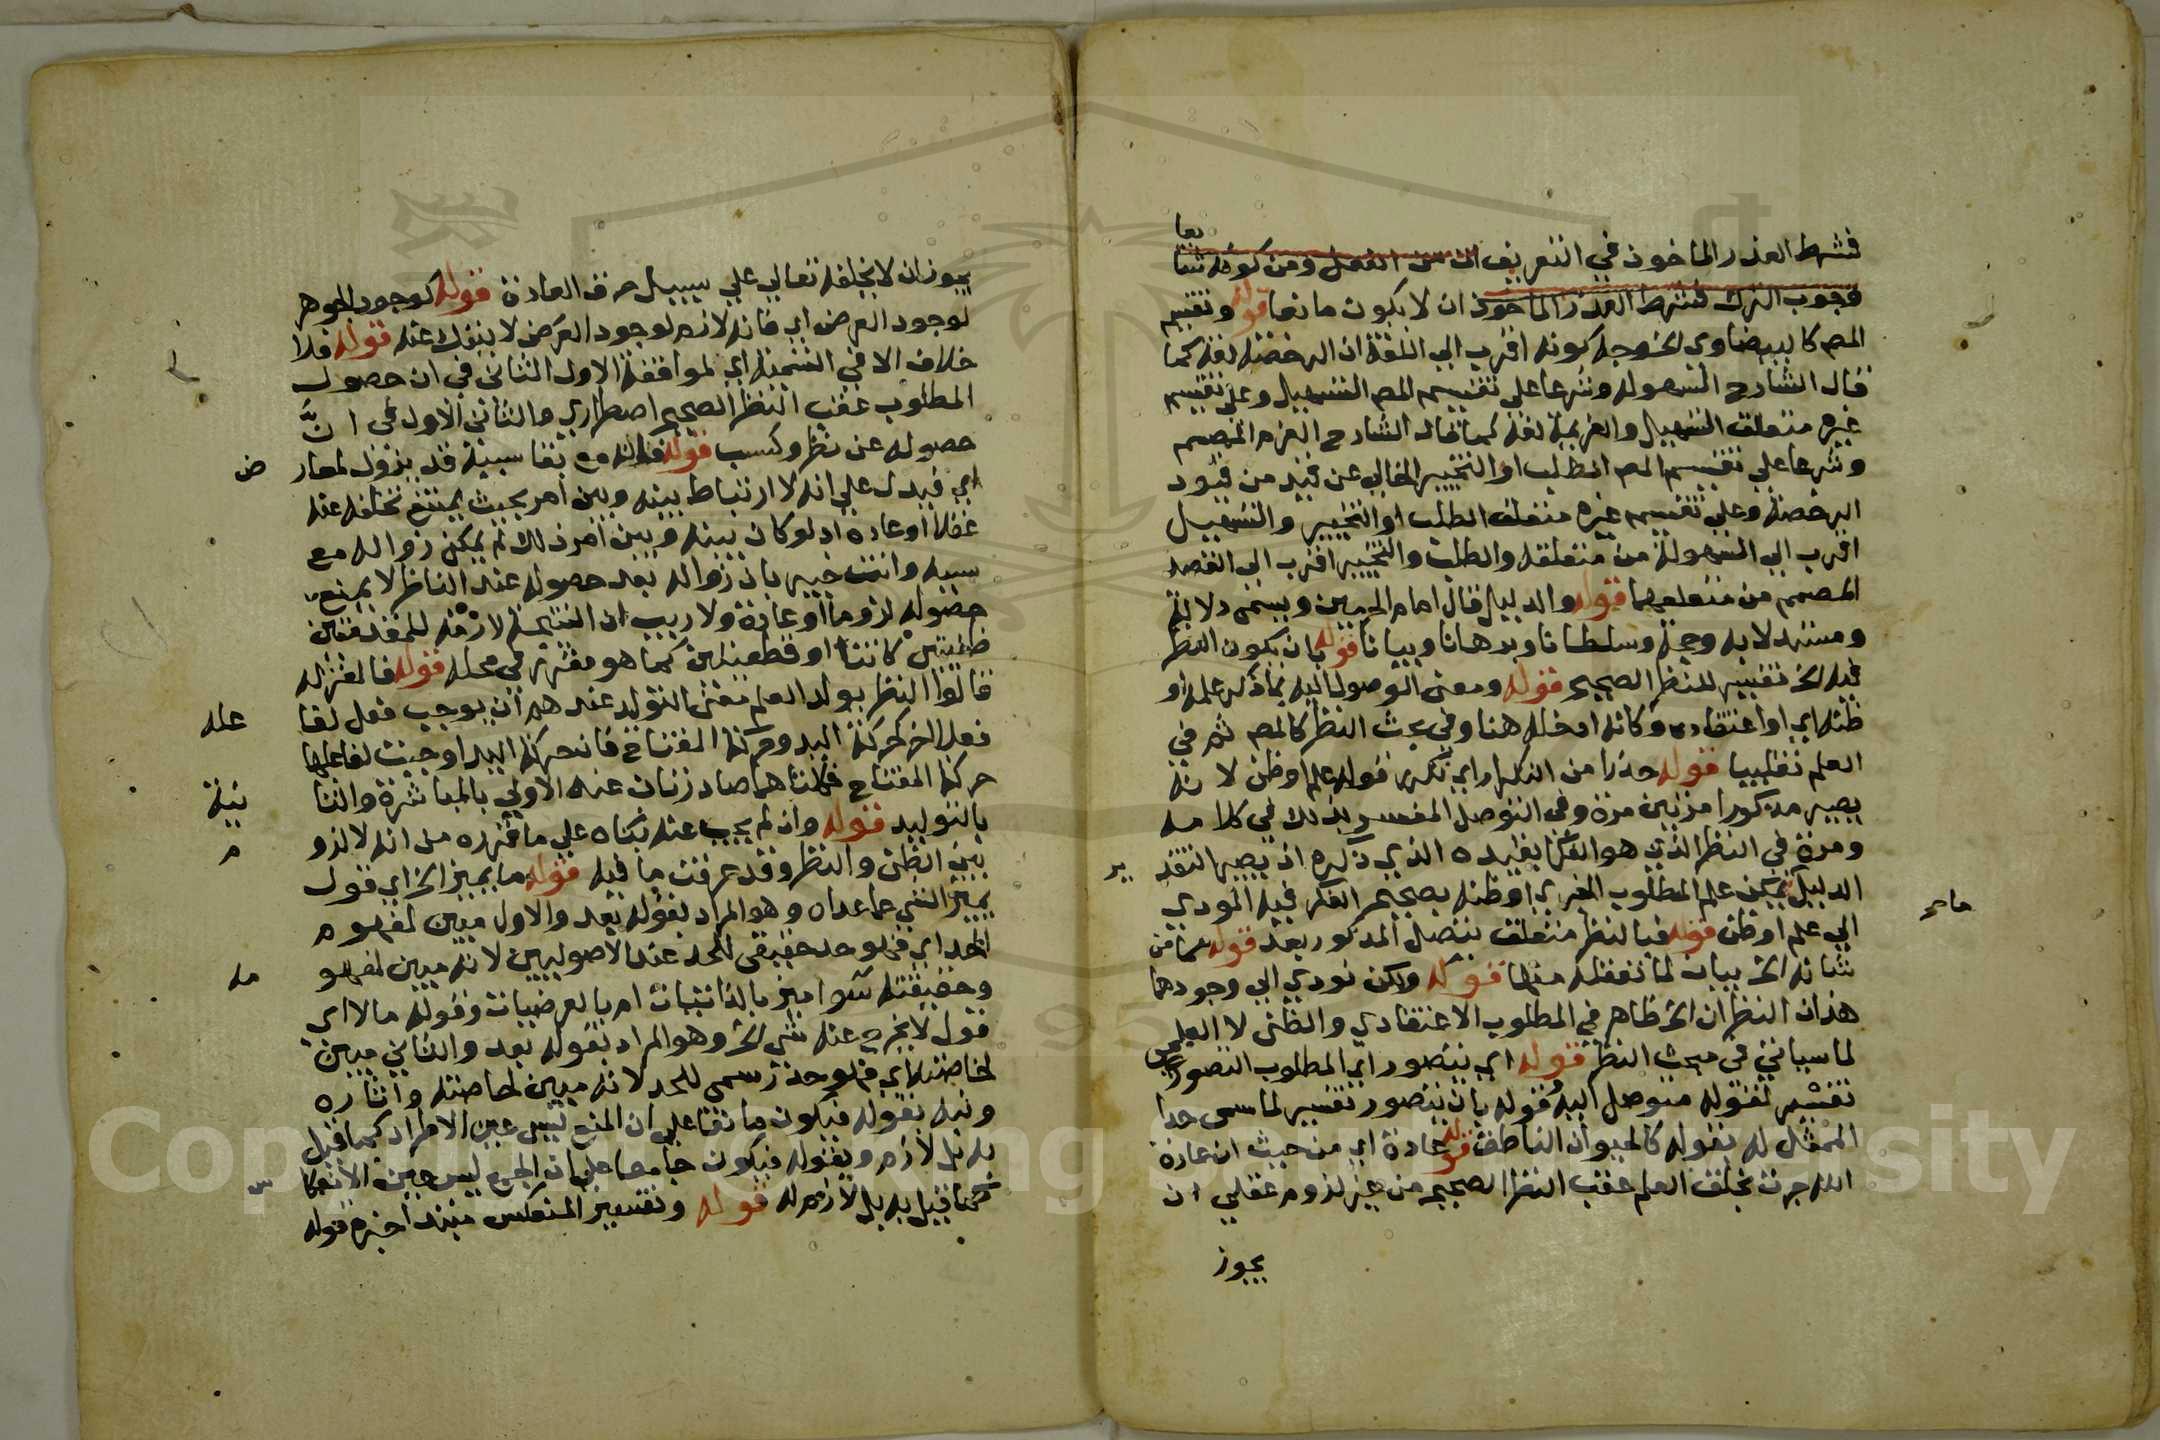 فشرط العذر الماخوذ في التعريف ان من الفعل ومن كونه شيا
نعا
فوجوب الترك فشرط العذر الماخوذ ان لا يكون مانعا قوله وتقسيم
المص كالبيضاوي الخ وجه كونه اقرب الي اللغة ان الرخصة لغة كما
قال الشارح السهولة وشرعا علي تقسيم المص التسهيل وعلي تقسيم
غيره متعلق التسهيل والعزيمة لغة كما قال الشارح العزم المصمم
وشرعا علي تقسيم المص الطلب او التخيير الخالي عن قيد من قيود
الرخصة وعلي تقسيم غيره متعلق الطلب او التخيير والتسهيل
اقرب الي السهولة من متعلقه والطلب والتخيير اقرب الي القصد
المصمم من متعلقهما قوله والدليل قال امام الحرمين ويسمي دلالة
ومستدلا به وحجة وسلطانا وبرهانا وبيانا قوله بان يكون النظر
فيه الخ تفسير للنظر الصحيح قوله ومعني الوصول اليه بما ذكر علمه او
ظنه اي او اعتقاده وكانه ادخله هنا وفي بحث النظر كالمص ثم في
العلم تغليبا قوله حذرا من التكرار اي تكرر قوله علم او ظن لانه
يصير مذكورا مرتين مرة وفي التوصل المفسر بذلك في كلامه
ومرة في النظر الذي هو الفكر بقيده الذي ذكره اذ يصير التقد
ير
الدليل يمكن علم المطلوب الخبري او ظنه بصحيح الفكر فيه المودي
الي علم او ظن قوله فبالنظر متعلق بتصل المذكور بعد قوله عما من
شانه الخ بيان لما تعقله منها قوله ولكن تودي الي وجودهما
هذان النظران الخ ظاهر في المطلوب الاعتقادي والظني لا العلمي
لما سياتي في مبحث النظر قوله اي يتصور اي المطلوب التصوري
تفسير لقوله متوصل اليه قوله بان يتصور تفسير لما سمي حدا
الممثل له بقوله كالحيوان الناطق قوله عادة اي من حيث ان عادة
الله جرت بخلق العلم عقب النظر الصحيح من غير لزوم عقلي ان
يجوز
يجوز ان لا يخلقه تعالي علي سبيل خرق العادة قوله كوجود الجوهر
لوجود العرض اي فانه لازم لوجود العرض لا ينفك عنه قوله فلا
خلاف الا في التسمية اي لموافقة الاول الثاني في ان حصول
المطلوب عقب النظر الصحيح اضطراري والثاني الاول في ان
حصوله عن نظر وكسب قوله فانه مع بقا سببه قد يزول لمعار
ض
اي فيدل علي انه لا ارتباط بينه وبين امر بحيث يمتنع تخلفه عنه
عقلا او عادة اذ لو كان بينه وبين امر ذلك لم يمكن زواله مع
سببه وانت خبير بان زواله بعد حصوله عند الناظر لا يمنع
حصوله لزوما او عادة ولا ريب ان النتيجة لازمة للمقدمتين
ظنيتين كانتا او قطعيتين كما هو مقرر في محله قوله فالمعتزلة
قالوا النظر يولد العلم معني التولد عندهم ان يوجب فعل لفا
عله
فعلا اخر كحركة اليد وحركة المفتاح فان حركة اليد اوجبت لفاعلها
حركة المفتاح فكلتاهما صادرتان عنه الاولي بالمباشرة والثا
نية
بالتوليد قوله وان لم يجب عنه بناه علي ما قرره من انه لا لزو
م
بين الظن والنظر وقد عرفت ما فيه قوله ما يميز الخ اي قول
يميز الشي عما عداه وهو المراد بقوله بعد والاول مبين لمفهوم
الحد اي فهو حد حقيقي للحد عند الاصوليين لانه مبين لمفهو
مه
وحقيقته سوا ميز بالذاتيات ام بالعرضيات وقوله ما لا اي
قول لا يخرج عنه شي الخ وهو المراد بقوله بعد والثاني مبين
لخاصته اي فهو حد رسمي للحد لانه مبين لخاصته واثاره
ونبه بقوله فيكون مانعا علي ان المنع ليس عين الاطراد كما قيل
به بل لازم وبقوله فيكون جامعا علي ان الجمع ليس عين الانعكا
س
كما قيل به بل لازم له قوله وتفسير المنعكس مبتدا خبره قوله